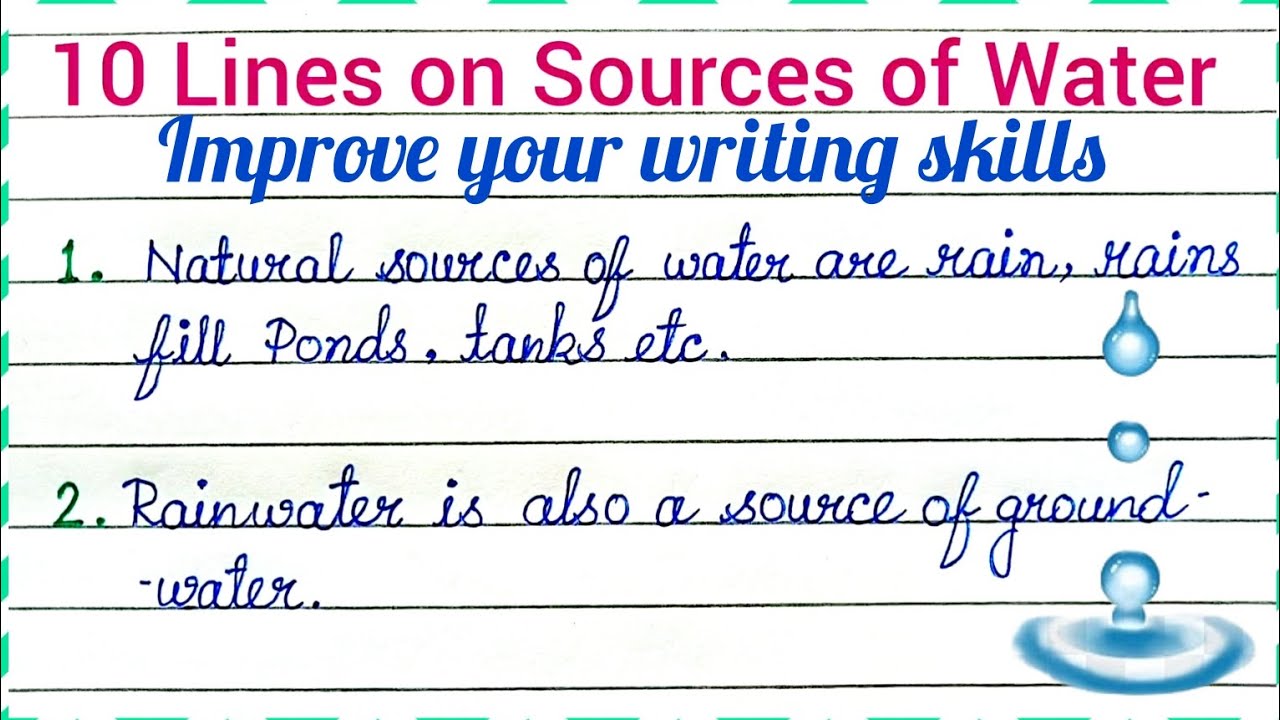 10 Lines on Sources of Water
Improve your writing skills
1. Natural sources of water are rain, rains
fill Ponds, tanks etc.
2. Rainwater is also a source of ground-
-water.